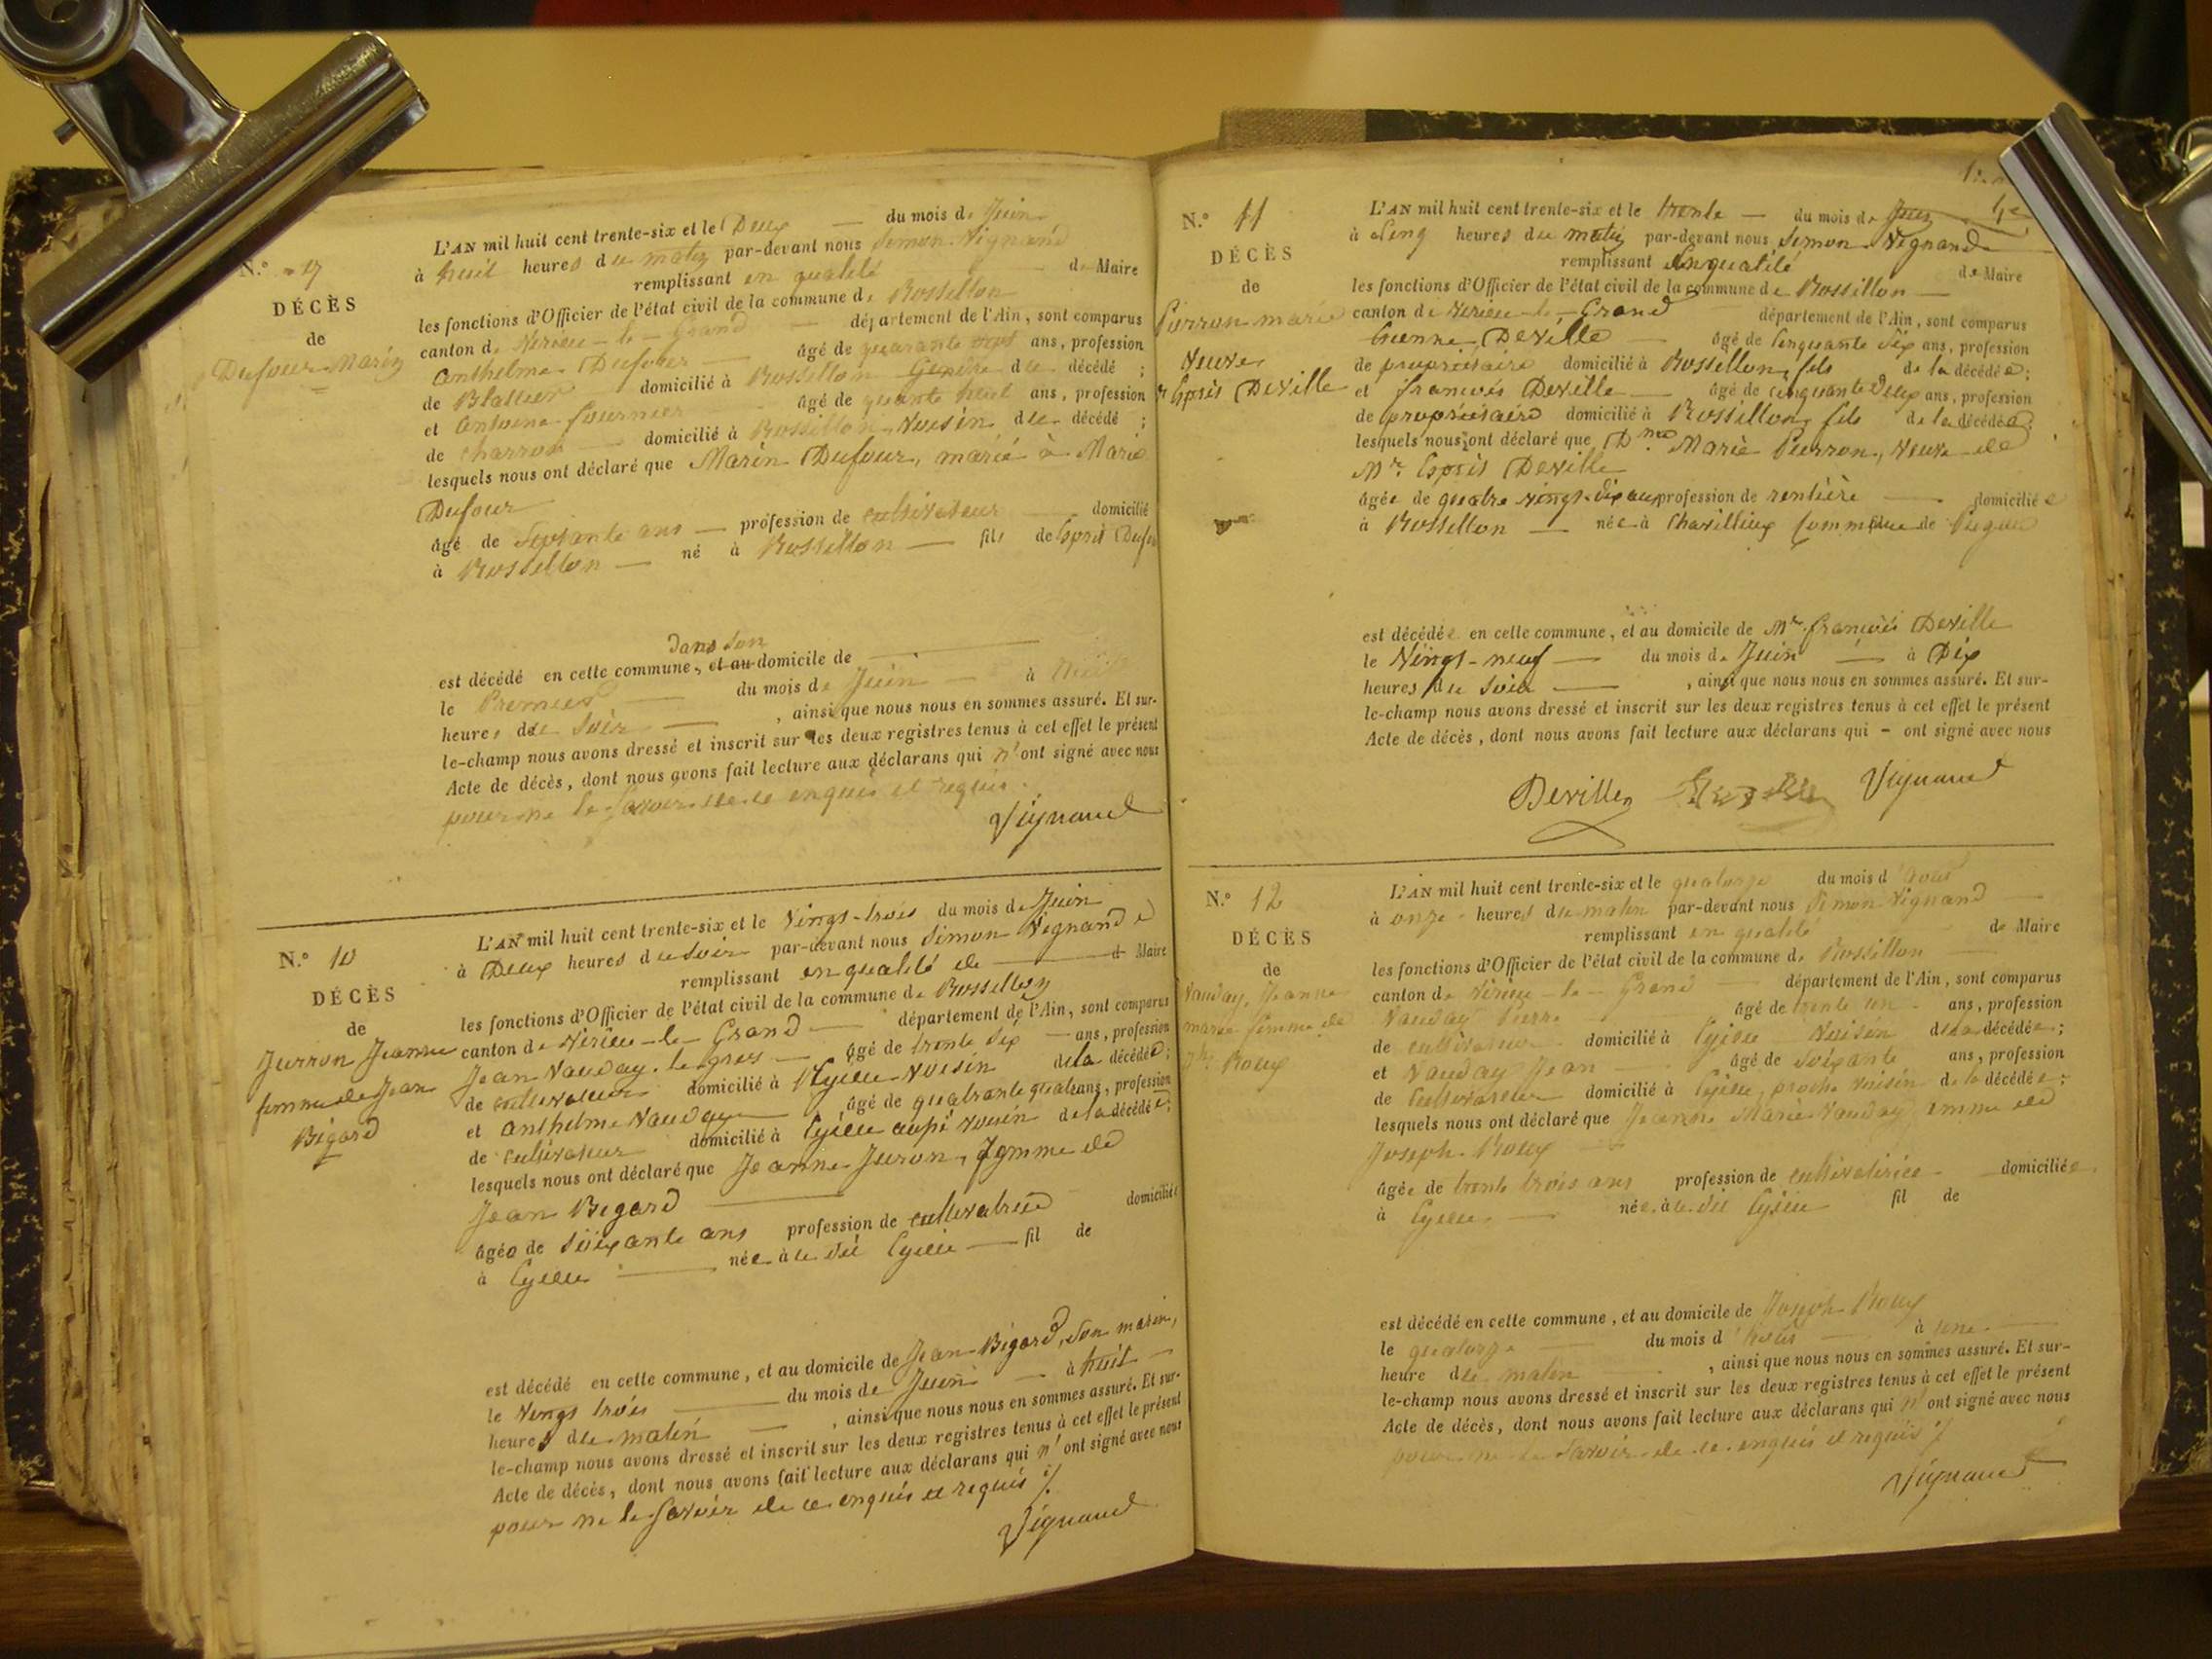 N.° 9
DÉCÈS
de
Dufour Marin
L'AN mil huit cent trente-six et le Deux — du mois de Juin
à huit heures du matin par-devant nous Simon Vignand
remplissant en qualité de Maire
les fonctions d'Officier de l'état civil de la commune de Rossillon
canton de Virieu-le-Grand — département de l'Ain, sont comparus
Anthelme Dufour — âgé de quarante ans, profession
de domicilié à Rossillon du décédé ;
et Antoine Fournier âgé de quarante huit ans, profession
de charron domicilié à Rossillon Voisin du décédé ;
lesquels nous ont déclaré que Marin Dufour, marié à Marie
Dufour
âgé de Septante ans — profession de cultivateur — domicilié
à Rossillon — né à Rossillon — fils de Esprit
dans son
est décédé en cette commune, et au domicile de —
le Premier — du mois de Juin — à
heures du Soir — , ainsi que nous nous en sommes assuré. Et sur-
le-champ nous avons dressé et inscrit sur les deux registres tenus à cet effet le présent
Acte de décès, dont nous avons fait lecture aux déclarans qui n'ont signé avec nous
pour ne le savoir de ce enquis et requis.
Vignand
N.° 10
DÉCÈS
de
Jurron Jeanne
femme de Jean
Bigard
L'AN mil huit cent trente-six et le Vingt-trois du mois de Juin
à Deux heures du soir par-devant nous Simon Vignand
remplissant en qualité de — Maire
les fonctions d'Officier de l'état civil de la commune de Rossillon
canton de Virieu-le-Grand — département de l'Ain, sont comparus
Jean Vauday — âgé de trente six — ans, profession
de cultivateur domicilié à Egieu Voisin de la décédée ;
et Anthelme Vauday âgé de quatrante quatre ans, profession
de cultivateur domicilié à Egieu aussi voisin de la décédée ;
lesquels nous ont déclaré que Jeanne Juron, femme de
Jean Bigard —
âgée de soixante ans profession de cultivatrice domiciliée
à Egieu — née à le dit Egieu — fil de
est décédé en cette commune, et au domicile de Jean Bigard, son marin,
le Vingt trois — du mois de Juin — à huit —
heures du matin — , ainsi que nous nous en sommes assuré. Et sur-
le-champ nous avons dressé et inscrit sur les deux registres tenus à cet effet le présent
Acte de décès, dont nous avons fait lecture aux déclarans qui n'ont signé avec nous
pour ne le savoir de ce enquis et requis
Vignand
N.° 11
DÉCÈS
de
Pierron marie
Veuve
Esprit Deville
L'AN mil huit cent trente-six et le trente — du mois de Juin
à cinq heures du matin par-devant nous Simon Vignand
remplissant en qualité de Maire
les fonctions d'Officier de l'état civil de la commune de Rossillon —
canton de Virieu-le-Grand département de l'Ain, sont comparus
Etienne Deville — âgé de Cinquante Six ans, profession
de propriétaire domicilié à Rossillon, fils de la décédée ;
et françois Deville — âgé de cinquante Deux ans, profession
de propriétaire domicilié à Rossillon, fils de la décédée ;
lesquels nous ont déclaré que Dme Marie Pierron, Veuve de
Mr Esprit Deville
âgée de quatre vingt-dix ans profession de rentière — domiciliée
à Rossillon — née à Charillieux Commune de Pugieu
est décédée en cette commune, et au domicile de Mr françois Deville
le Vingt-neuf — du mois de Juin — à Dix
heures du Soir — , ainsi que nous nous en sommes assuré. Et sur-
le-champ nous avons dressé et inscrit sur les deux registres tenus à cet effet le présent
Acte de décès, dont nous avons fait lecture aux déclarans qui - ont signé avec nous
Deville Vignand
N.° 12
DÉCÈS
de
Vauday, Jeanne
marie femme de
Roux
L'AN mil huit cent trente-six et le quatorze du mois d'août
à onze heures du matin par-devant nous Simon Vignand
remplissant en qualité de Maire
les fonctions d'Officier de l'état civil de la commune de Rossillon —
canton de Virieu-le-Grand — département de l'Ain, sont comparus
Vauday Pierre âgé de trente un ans, profession
de cultivateur domicilié à Egieu Voisin de la décédée ;
et Vauday Jean — âgé de soixante ans, profession
de Cultivateur domicilié à Egieu, proche voisin de la décédée ;
lesquels nous ont déclaré que Jeanne Marie Vauday femme de
Joseph Roux
âgée de trente trois ans profession de cultivatrice — domiciliée
à Egieu, — née à le dit Egieu fil de
est décédé en cette commune, et au domicile de Joseph Roux
le quatorze — du mois d'Août — à une —
heure du matin — , ainsi que nous nous en sommes assuré. Et sur-
le-champ nous avons dressé et inscrit sur les deux registres tenus à cet effet le présent
Acte de décès, dont nous avons fait lecture aux déclarans qui n'ont signé avec nous
pour ne le savoir de ce enquis et requis
Vignand